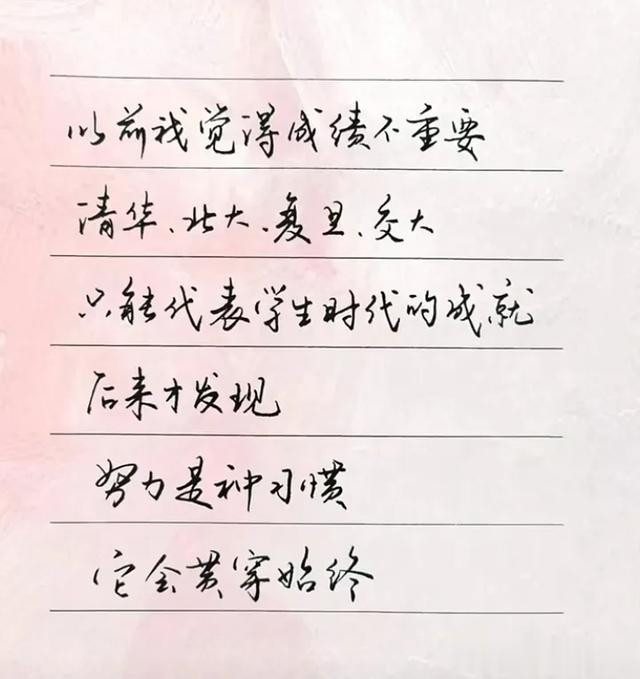 以前我觉得成绩不重要
清华、北大、复旦、交大
只能代表学生时代的成就
后来才发现
努力是种习惯
它会贯穿始终